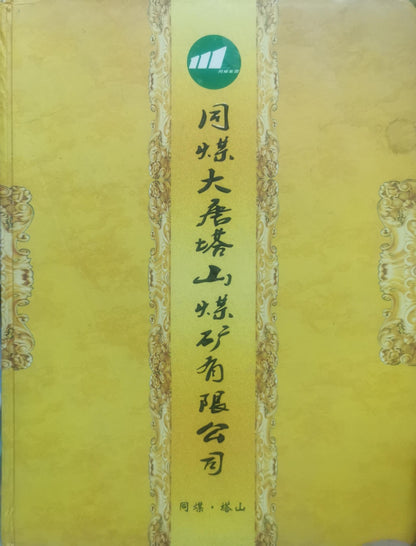 同煤集团
同煤大唐塔山煤矿有限公司
同煤·塔山